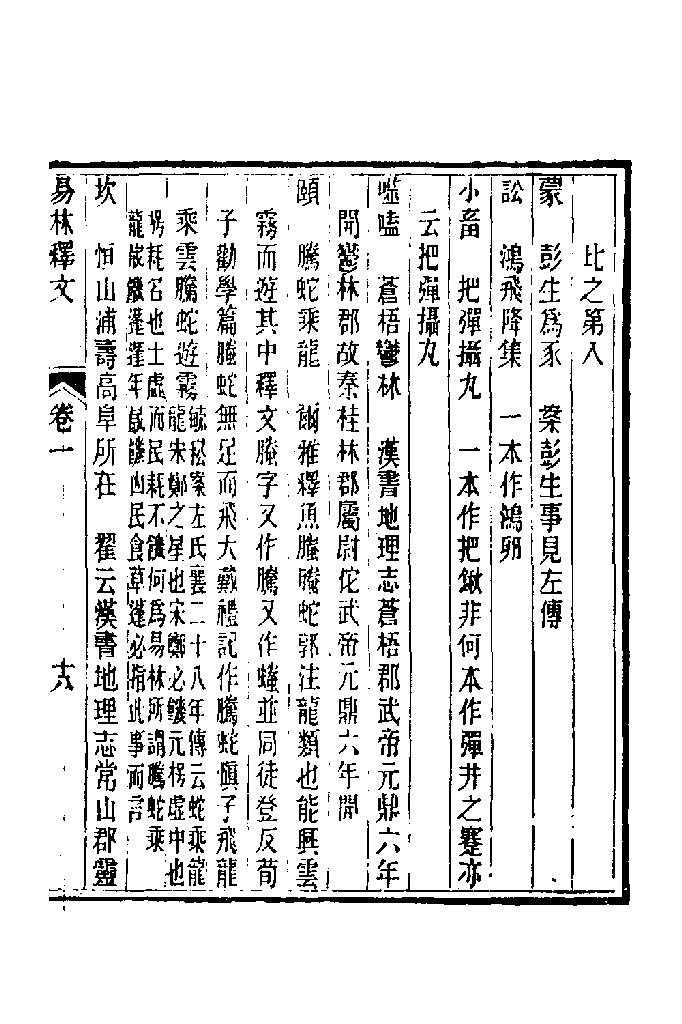 比之第八
蒙　彭生為豕　案彭生事見左傳
訟　鴻飛降集　一本作鴻卵
小畜　把彈攝丸　一本作把鍬非何本作彈井之蹇亦
云把彈攝丸
噬嗑　蒼梧鬱林　漢書地理志蒼梧郡武帝元鼎六年
開鬱林郡故秦桂林郡屬尉佗武帝元鼎六年開
頤　騰蛇乘龍　爾雅釋魚螣螣蛇郭注龍類也能興雲
霧而遊其中釋文螣字又作騰又作並同徒登反荀
子勸學篇螣蛇無足而飛大戴禮記作騰蛇慎子飛龍
乘雲騰蛇遊霧毓崧案左氏襄二十八年傳云蛇乘龍
龍宋鄭之星也宋鄭必饑元枵虛中也
枵耗名也土虛而民耗不饑何為易林所謂騰蛇乘
龍歲饑蓬蓬年歲饑凶民食草蓬必指此事而言
坎　恒山浦壽高阜所在　翟云漢書地理志常山郡靈
易林釋文　卷一　十八